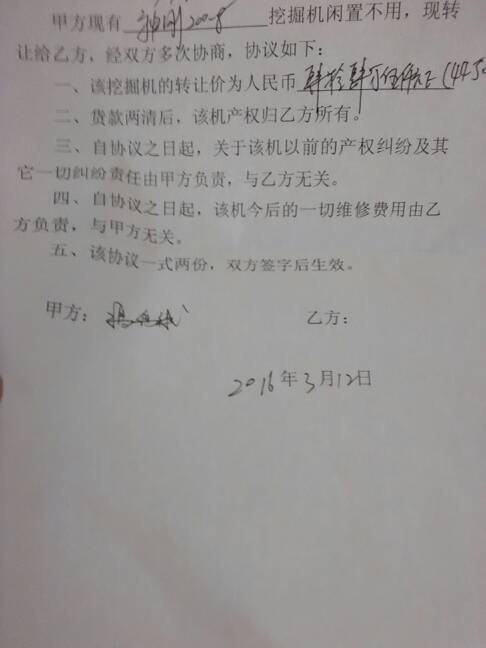 甲方现有 神钢200-8 挖掘机闲置不用，现转
让给乙方，经双方多次协商，协议如下：
一、该挖掘机的转让价为人民币 肆拾肆万伍仟元（44.5
二、货款两清后，该机产权归乙方所有。
三、自协议之日起，关于该机以前的产权纠纷及其
它一切纠纷责任由甲方负责，与乙方无关。
四、自协议之日起，该机今后的一切维修费用由乙
方负责，与甲方无关。
五、该协议一式两份，双方签字后生效。
甲方： 乙方：
2016年3月12日